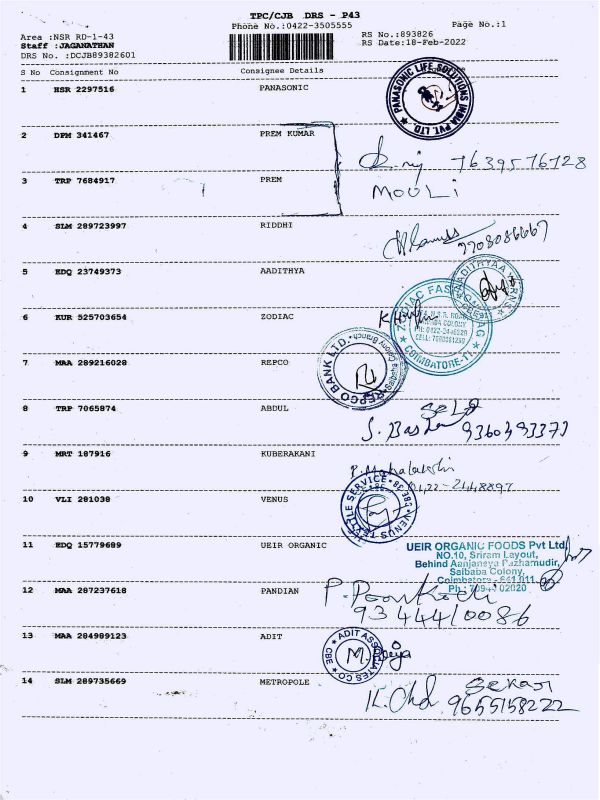 TPC/CJB DRS - P43
Phone No.:0422-3505555 Page No.:1
Area :NSR RD-1-43 RS No.:893826
Staff :JAGANATHAN RS Date:18-Feb-2022
DRS No. :DCJB89382601
S No Consignment No Consignee Details
1 HSR 2297516 PANASONIC
PANASONIC LIFE SOLUTIONS INDIA PVT. LTD.
2 DPM 341467 PREM KUMAR
7639576728
3 TRP 7684917 PREM
MOULI
4 SLM 289723997 RIDDHI
7708086667
5 EDQ 23749373 AADITHYA
6 KUR 525703654 ZODIAC
COIMBATORE-11
7 MAA 289216028 REPCO
REPCO BANK LTD. Saibaba Colony Branch
8 TRP 7065874 ABDUL
SELF
9360393373
9 MRT 187916 KUBERAKANI
0422-2448897
10 VLI 281038 VENUS
VENUS TEXTILE SERVICE
11 EDQ 15779689 UEIR ORGANIC
UEIR ORGANIC FOODS Pvt Ltd
NO.10, Sriram Layout,
Behind Aanjaneya Pazhamudir,
Saibaba Colony,
Coimbatore - 641 011
12 MAA 287237618 PANDIAN
P. Poonkodi
9344410086
13 MAA 284989123 ADIT
ADIT ASSOCIATES CO CBE
14 SLM 289735669 METROPOLE
9655158222